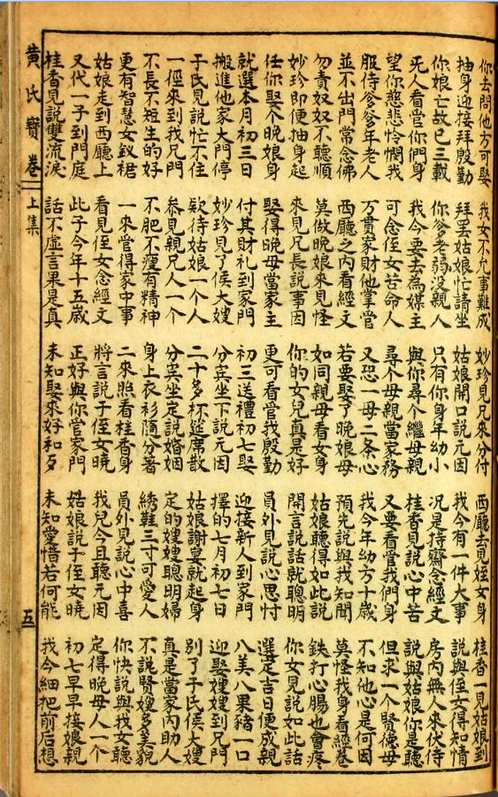 你去問他方可娶 我女不允事難成 妙珍見兄來分付 西廳去見姪女身 桂香一見姑娘到
抽身迎接拜殷勤 拜罢姑娘忙請坐 姑娘開口說元因 我今有一件大事 說與姪女得知情
你娘亡故已三載 你爹老弱沒親人 只有你身年幼小 況是持齋念經文 房內無人來伏侍
死人看管你們身 我今要去為媒主 與你尋个繼母親 桂香見說心中苦 說與姑娘你是聽
望你慈悲怜憫我 可念姪女苦命人 尋个母親當家務 又要看管我們身 但求一个賢德母
服侍爹爹年老人 万貫家財他掌管 又恐一母二条心 我今年幼方十歲 不知他心是何因
並不出門常念佛 西廳之內看經文 若要娶了晚娘母 預先說與我知聞 莫怪我身看經卷
勿責奴奴不聽順 莫做晚娘來見怪 如同親母看女身 姑娘聽得如此說 鉄打心腸也會疼
妙珍即便抽身起 來見兄長說事因 你的女兒真是好 開言說話就聰明 你女見說如此話
任你娶个晚娘身 娶得晚母當家主 更可看管我殷勤 員外見說心思忖 選定吉日便成親
就選本月初三日 付其財礼到家門 初三送禮初七娶 迎接新人到家門 八美八果猪一口
搬進他家大門停 妙珍見了侯大嫂 分宾坐下說元因 擇的七月初七日 迎娶嫂嫂到兄門
于氏見說忙不住 欵待姑娘一个人 二十多杯筵席散 姑娘謝宴就起身 別了于氏侯大嫂
一徑來到我兄門 叅見親兄人一个 分宾坐定說婚姻 定的嫂嫂聰明婦 真是當家內助人
不長不短生的好 不肥不瘦有精神 身上衣衫隨分着 綉鞋三寸可愛人 不說賢嫂多美貌
更有智慧女釵裙 一來當得家中事 二來照看桂香身 員外見說心中喜 你快說與我女聽
姑娘走到西廳上 看見姪女念經文 將言說于姪女曉 我兒今且聽元因 定得晚母人一个
又代一子到門庭 此子今年十五歲 正好與你當家門 姑娘說于姪女曉 初七早早接娘親
桂香見說雙流淚 話不虛言果是真 未知娶來好和歹 未知愛惜若何能 我今細把前后想
黄氏寶卷 上集 五